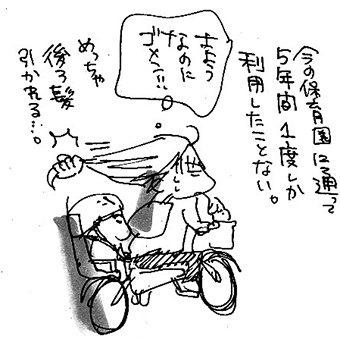 今の保育園に通って
5年間1度しか
利用したことない。
土よう
なのに
ゴメン!!
めっちゃ
後ろ髪
引かれる…。